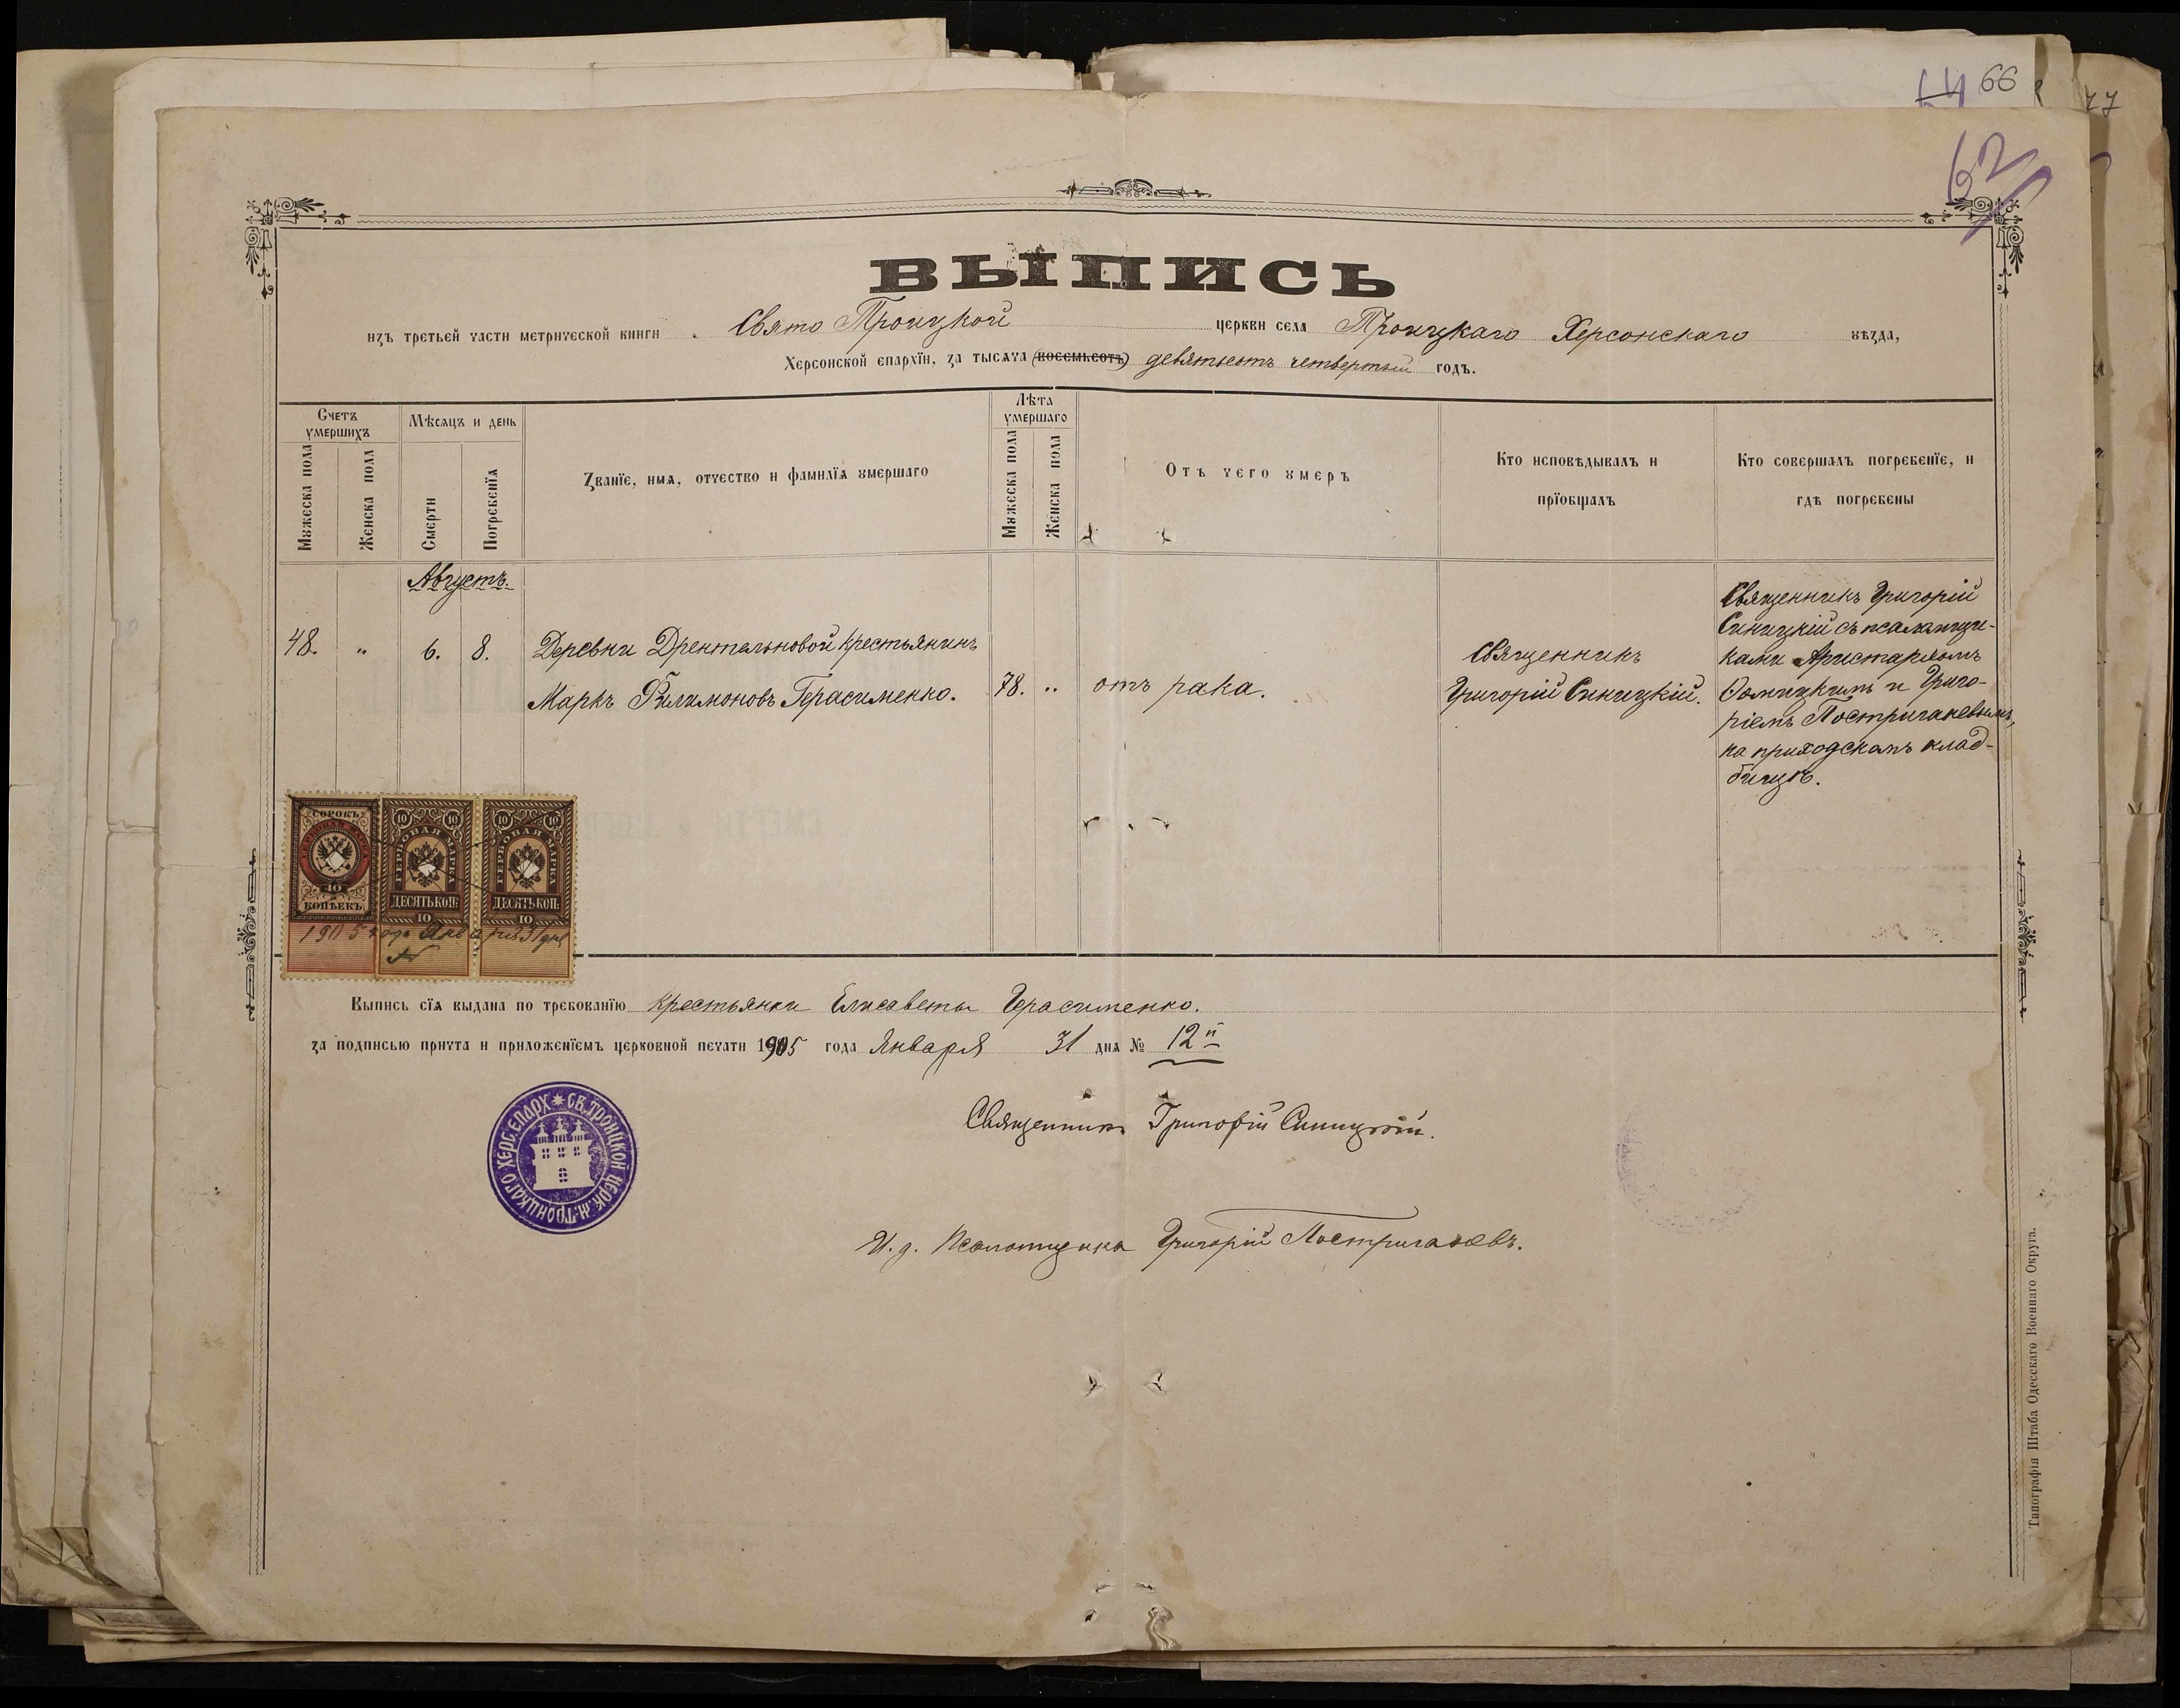 66
77
62
ВЫПИСЬ
изъ третьей части метрической книги Свято Троицкой церкви села Троицкаго Херсонскаго уѣзда,
Херсонской епархїи, за тысяча (восемьсотъ) девятьсотъ четвертый годъ.
Счетъ умершихъ
Мужеска пола
Женска пола
Мѣсяцъ и день
Смерти
Погребенїя
Званїе, имя, отчество и фамилїя умершаго
Лѣта умершаго
Мужеска пола
Женска пола
Отъ чего умеръ
Кто исповѣдывалъ и
прїобщалъ
Кто совершалъ погребенїе, и
гдѣ погребены
Августъ.
48. „ 6. 8.
Деревни Дрентельновой крестьянинъ
Маркъ Филимоновъ Герасименко.
78. „
отъ рака.
Священникъ
Григорій Синицкій.
Священникъ Григорій
Синицкій съ псаломщи-
ками Аристархомъ
Ѳомицкимъ и Григо-
ріемъ Постригачевымъ,
на приходскомъ клад-
бищѣ.
СОРОКЪ
10
КОПѢЕКЪ
10 10
ГЕРБОВАЯ МАРКА
ДЕСЯТЬ КОП:
10
10 10
ГЕРБОВАЯ МАРКА
ДЕСЯТЬ КОП:
10
1905 года Января 31 дня
Выпись сїя выдана по требованїю крестьянки Елисаветы Герасименко.
за подписью причта и приложенїемъ церковной печати 1905 года Января 31 дня № 12й
СВ. ТРОИЦКОЙ ЦЕРК. М. ТРОИЦКАГО ХЕРС. ЕПАРХ
Священникъ Григорій Синицкій.
И. д. Псаломщика Григорій Постригачевъ.
Типографія Штаба Одесскаго Военнаго Округа.